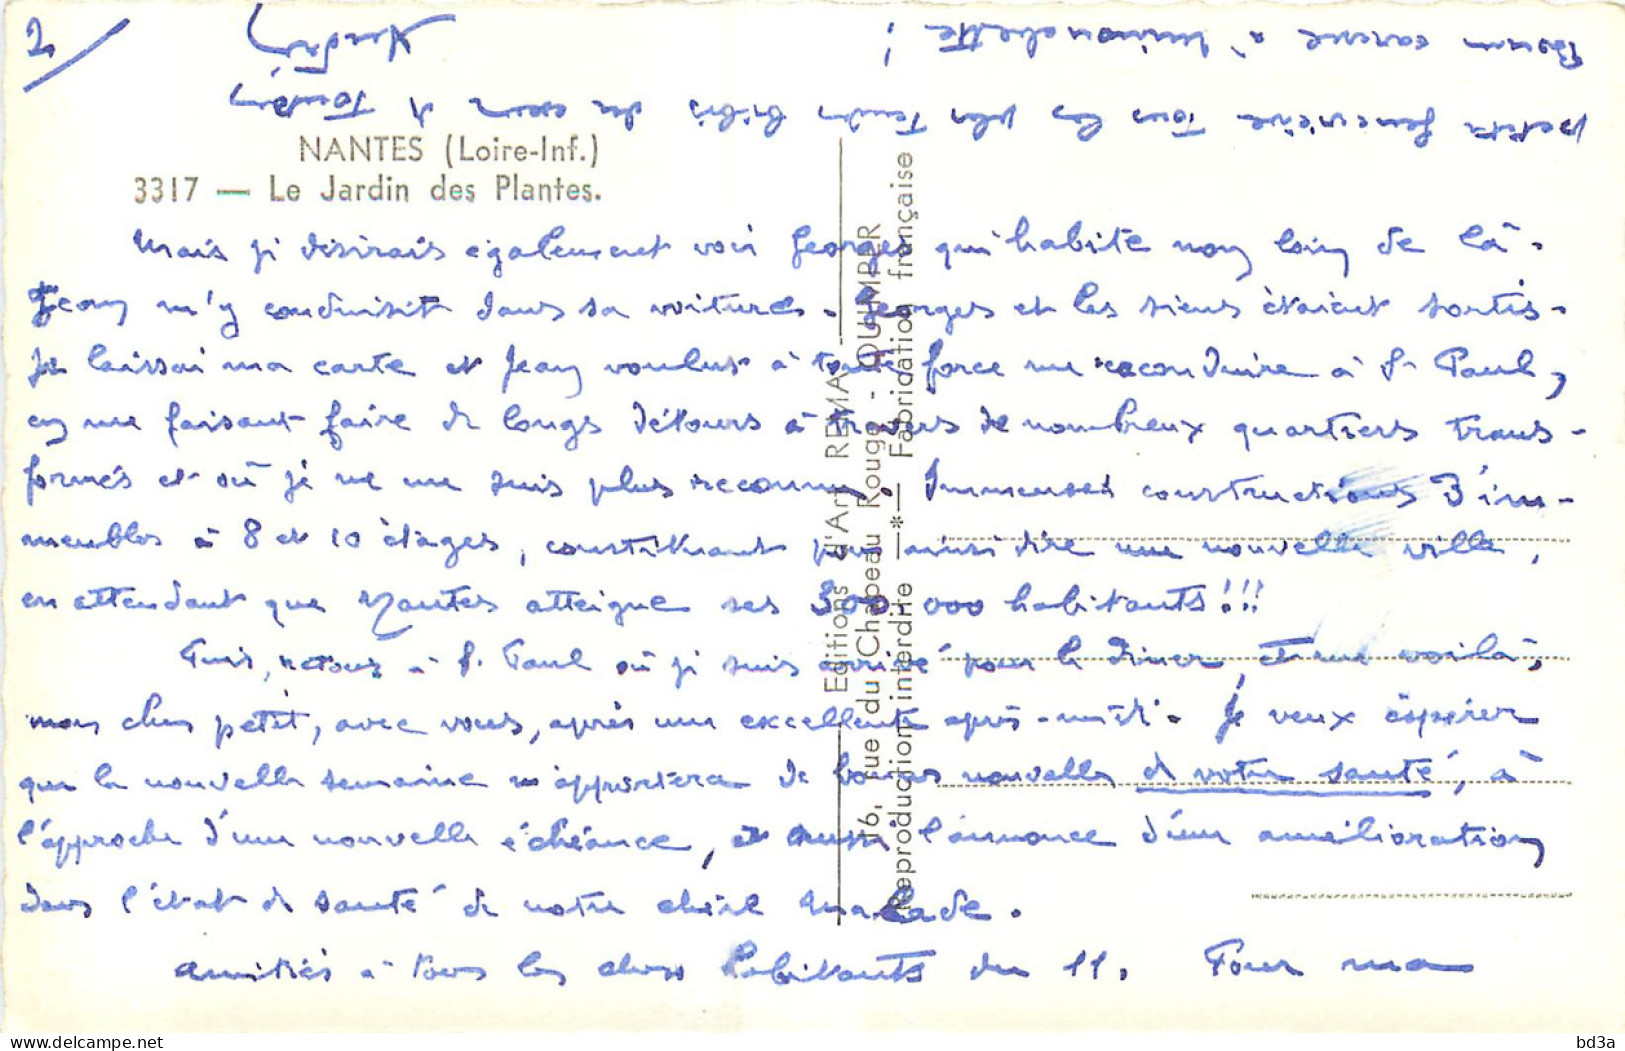 2/
NANTES (Loire-Inf.)
3317 — Le Jardin des Plantes.
Mais je désirais également voir Georges qui habite non loin de là.
Jean m'y conduisit dans sa voiture. Georges et les siens étaient sortis.
Je laissai ma carte et Jean voulut à toute force me reconduire à St Paul,
en me faisant faire de longs détours à travers de nombreux quartiers trans-
formés et où je ne me suis plus reconnu. Immenses constructions d'im-
meubles à 8 et 10 étages, constituant pour ainsi dire une nouvelle ville,
en attendant que Nantes atteigne ses 300.000 habitants!!!
Puis, retour à St Paul où je suis arrivé pour le dîner, et me voilà,
mon cher petit, avec vous, après une excellente après-midi. Je veux espérer
que la nouvelle semaine m'apportera de bonnes nouvelles de votre santé, à
l'approche d'une nouvelle échéance, et aussi l'annonce d'une amélioration
dans l'état de santé de notre chère malade.
Amitiés à tous les chers habitants du 11. Pour ma
petite Geneviève tous les plus tendres du cœur de Tonton
Bonne caresse à !
Editions d'Art REMA
16, rue du Chapeau Rouge - QUIMPER
Reproduction interdite —*— Fabridation française
bd3a